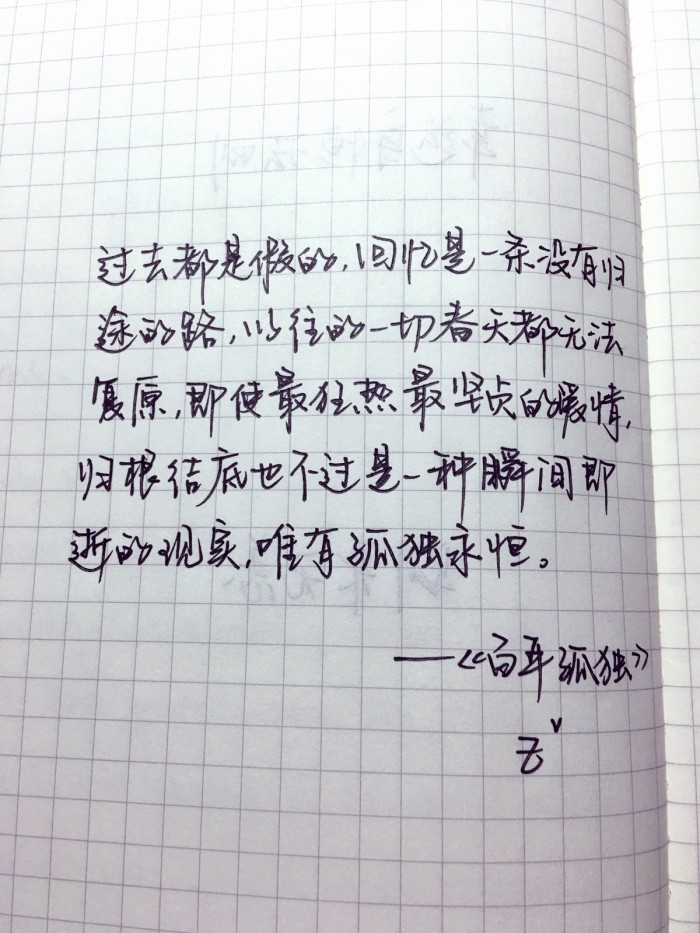 过去都是假的,回忆是一条没有归
途的路,以往的一切春天都无法
复原,即使最狂热最坚贞的爱情,
归根结底也不过是一种瞬间即
逝的现实,唯有孤独永恒。
——《百年孤独》